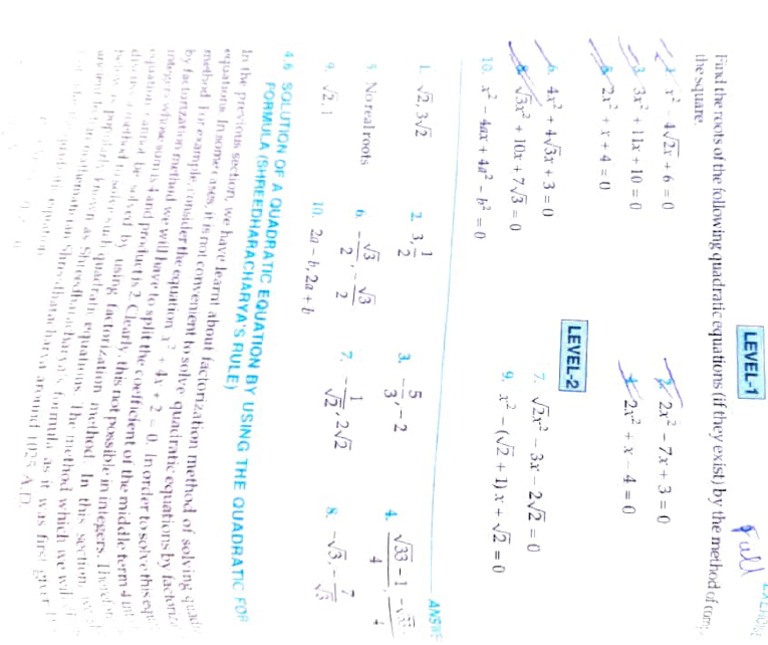 Full
LEVEL-1
Find the roots of the following quadratic equations (if they exist) by the method of
the square.
x² - 4√2x + 6 = 0
2x² - 7x + 3 = 0
3. 3x² + 11x + 10 = 0
2x² + x - 4 = 0
2x² + x + 4 = 0
LEVEL-2
6. 4x² + 4√3x + 3 = 0
7. √2x² - 3x - 2√2 = 0
√3x² + 10x + 7√3 = 0
9. x² - (√2 + 1) x + √2 = 0
10. x² - 4ax + 4a² - b² = 0
1. √2, 3√2
2. 3, 1/2
3. -5/3, -2
4. √33 - 1/4,
5. No real roots
6. -√3/2, -√3/2
7. -1/√2, 2√2
8. -√3, -7/√3
9. √2, 1
10. 2a - b, 2a + b
4.6 SOLUTION OF A QUADRATIC EQUATION BY USING THE QUADRATIC
FORMULA (SHREEDHARACHARYA'S RULE)
In the previous section, we have learnt about factorization method of solving
equations. In some cases, it is not convenient to solve quadratic equations by
method. For example, consider the equation x² + 4x + 2 = 0. In order to solve this
by factorization method we will have to split the coefficient of the middle term 4
integers whose sum is 4 and product is 2. Clearly, this not possible in integers.
equation cannot be solved by using factorization method. In this section,
method to solve such quadratic equations. The method which we
popularly known as Shreedharacharya's formula as it was first
Shreedharacharya around 1025 A.D.